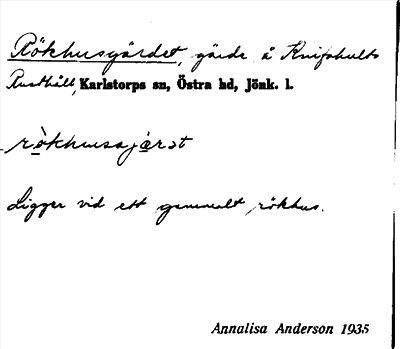 Rökhusgärdet, gärde å Knifshults
Rusthåll, Karlstorps sn, Östra hd, Jönk. l.
Ligger vid ett gammalt rökhus.
Annalisa Anderson 1935